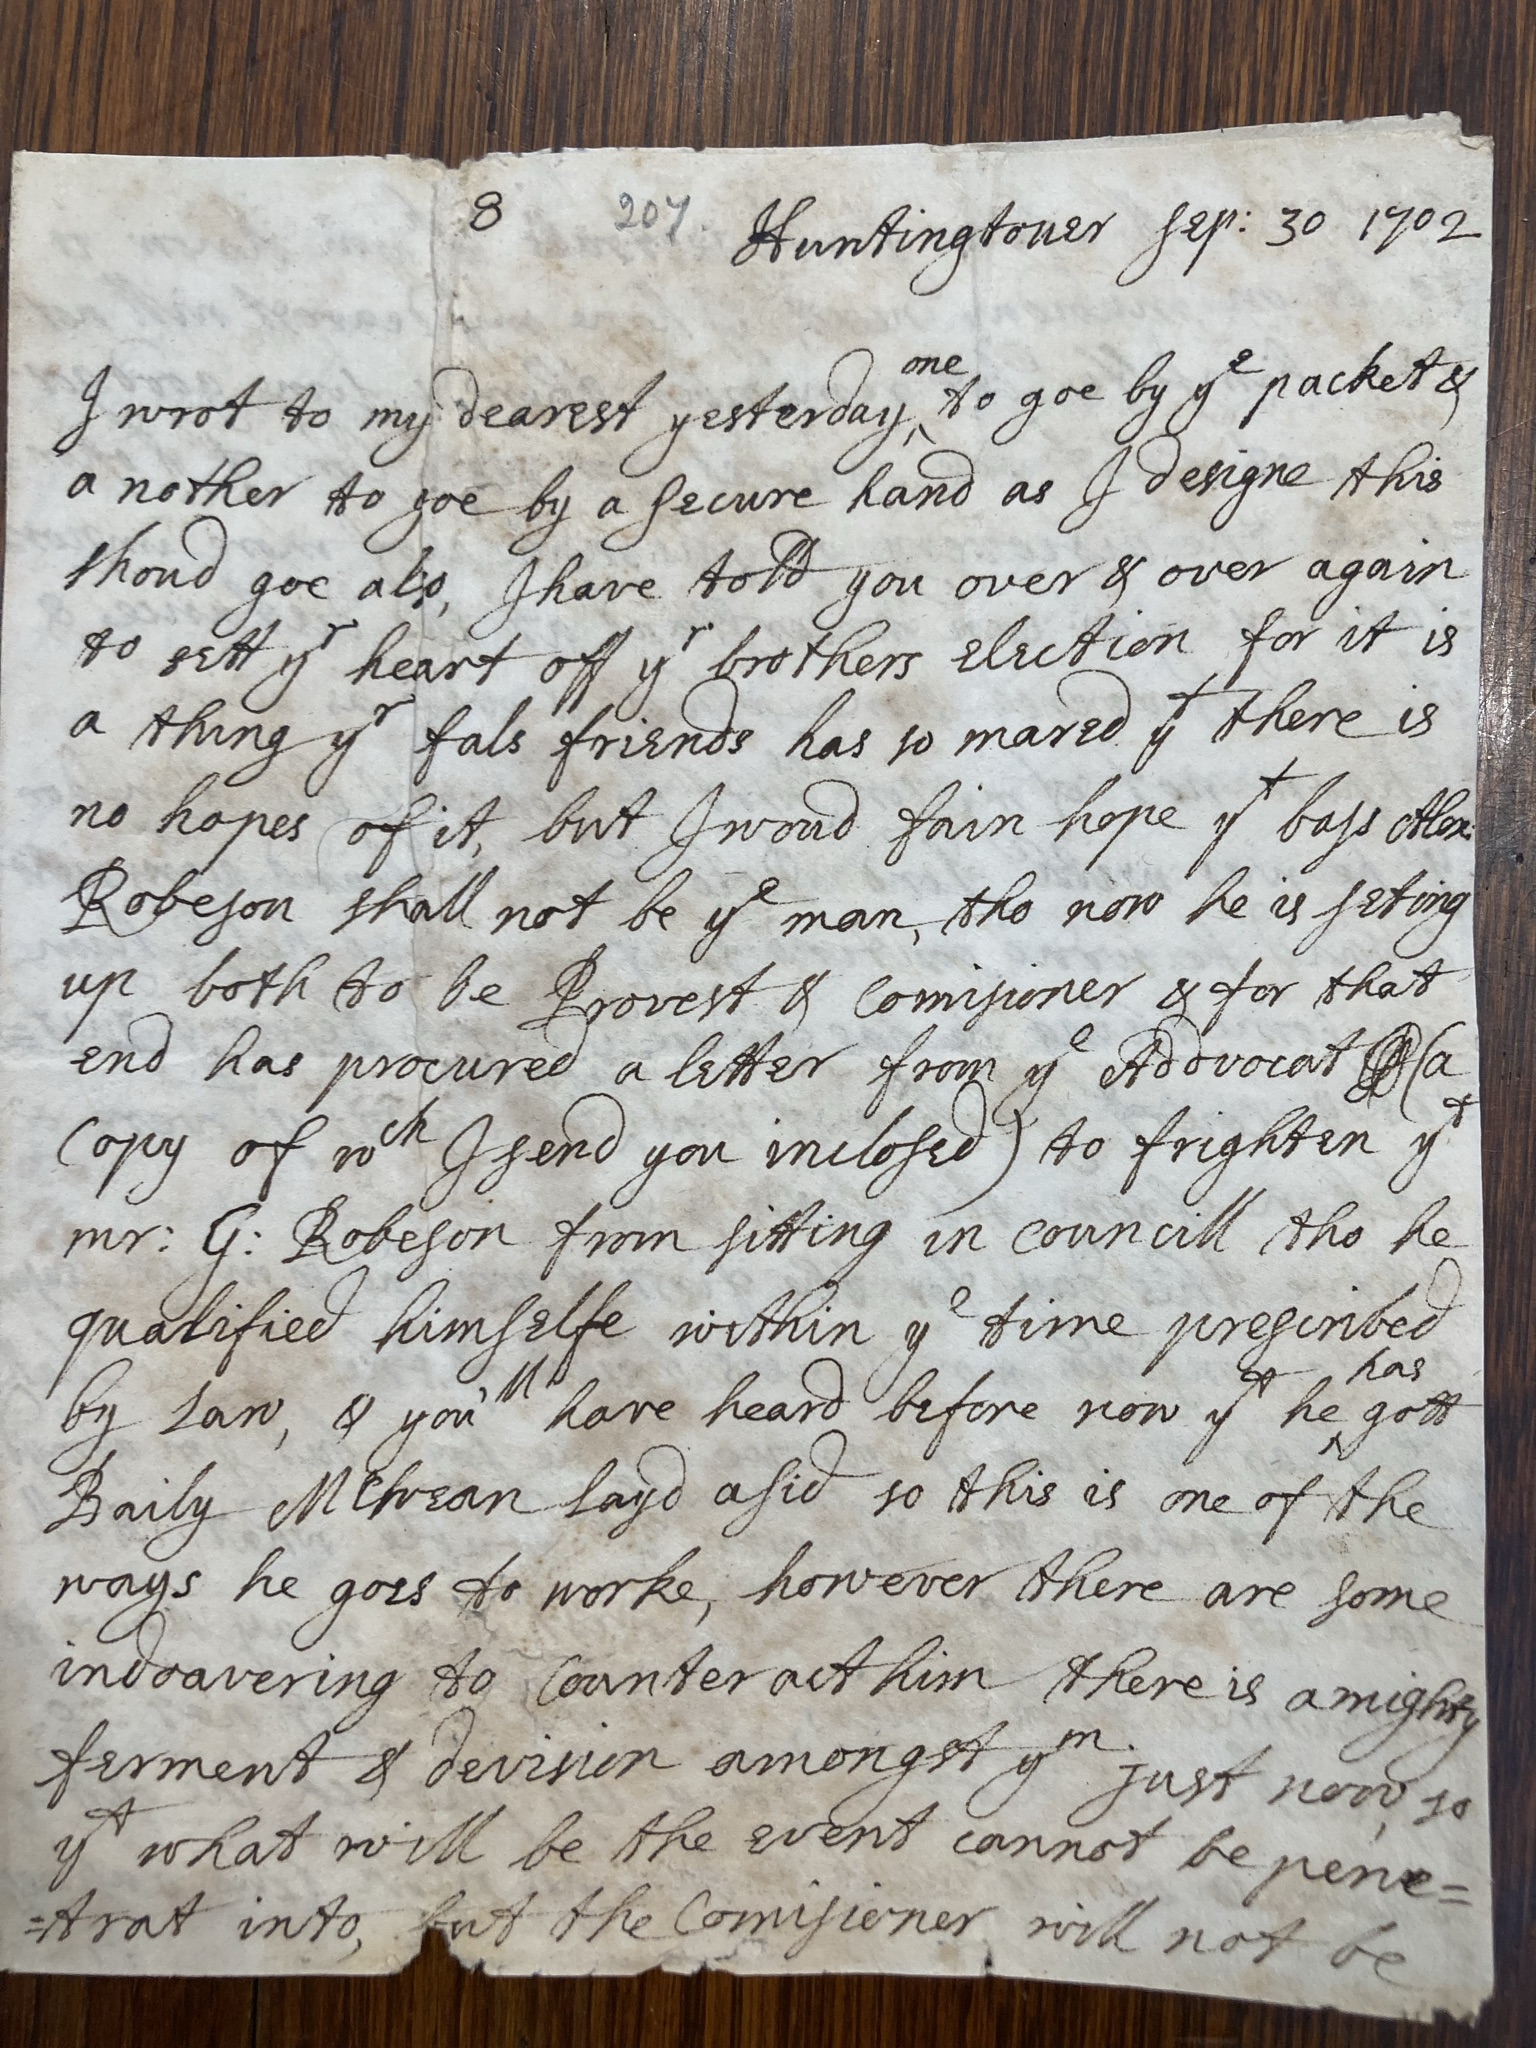 8 207. Huntingtouer Sep: 30 1702
I wrot to my dearest yesterday, one to goe by ye packet &
a nother to goe by a secure hand as I designe this
shoud goe also, I have told you over & over again
to sett yr heart off yr brothers election for it is
a thing yr fals friends has so mared yt there is
no hopes of it, but I woud fain hope yt bass Alex:
Robeson shall not be ye man, tho now he is seting
up both to be Provest & Comisioner & for that
end has procured a letter from ye Addvocat (a
Copy of wch I send you inclosed) to frighten yt
mr: G: Robeson from sitting in councill tho he
qualified himselfe within ye time prescribed
by Law, & you'll have heard before now yt he has gott
Baily layd asid so this is one of the
ways he goes to worke, however there are some
indoavering to Counter act him there is a mighty
ferment & devision amongst ym just now, so
yt what will be the event cannot be pene=
=trat into, but the Comisioner will not be